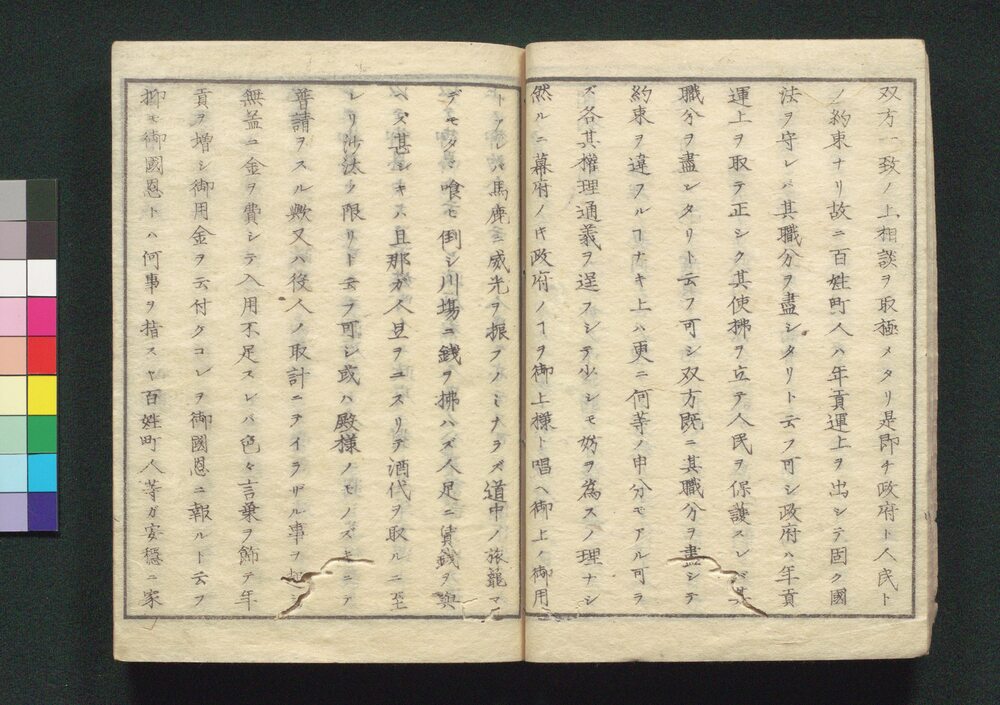 双方一致ノ上相談ヲ取極メタリ是即チ政府ト人民ト
ノ約束ナリ故ニ百姓町人ハ年貢運上ヲ出シテ固ク國
法ヲ守レバ其職分ヲ盡シタリト云フ可シ政府ハ年貢
運上ヲ取テ正シク其使拂ヲ立テ人民ヲ保護スレバ其
職分ヲ盡シタリト云フ可シ双方既ニ其職分ヲ盡シテ
約束ヲ違フルヿナキ上ハ更ニ何等ノ申分モアル可ラ
ズ各其權理通義ヲ逞フシテ少シモ妨ヲ為スノ理ナシ
然ルニ幕府ノ𪜈政府ノヿヲ御上様ト唱ヘ御上ノ御用
トアレバ馬鹿ニ威光ヲ振フノミナラズ道中ノ旅籠マ
デモタヾ喰モ倒シ川場ニ銭ヲ拂ハズ人足ニ賃銭ヲ與
ヘズ甚シキハ旦那ガ人足ヲユスリテ酒代ヲ取ルニ至
レリ沙汰ノ限リト云フ可シ或ハ殿様ノモノズキニテ
普請ヲスル歟又ハ役人ノ取計ニテイラザル事ヲ
無益ニ金ヲ費シテ入用不足スレバ色々言葉ヲ飾テ年
貢ヲ増シ御用金ヲ云付クコレヲ御國恩ニ報ルト云フ
抑モ御國恩トハ何事ヲ指スヤ百姓町人等ガ安穏ニ家